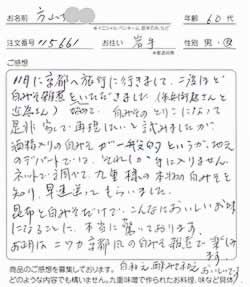 お名前
年齢 60代
※イニシャル・ペンネーム・匿名希望可
注文番号 115661 お住い 岩手 性別 男・女
ご感想
11月に京都へ旅行に行きまして、二度ほど
白みそ雑煮をいただきました
初めて、白みそのとりこになって
是非家で再現したいと試みましたが
酒粕入りの白みそが一般的というか、地元
のデパートでは、それしか手に入りません。
ネットで調べて、九重様の本物の白みそを
知り、早速送ってもらいました。
昆布と白みそだけで、こんなにおいしいお味
になることに、本当に驚いております。
お正月はニワカ京都風の白みそ雑煮で
ます。
白和え、酢みそ和え おいしいです
商品のご感想を募集しております。
どのような内容でも構いません。九重味噌で作られたお料理、味など具体